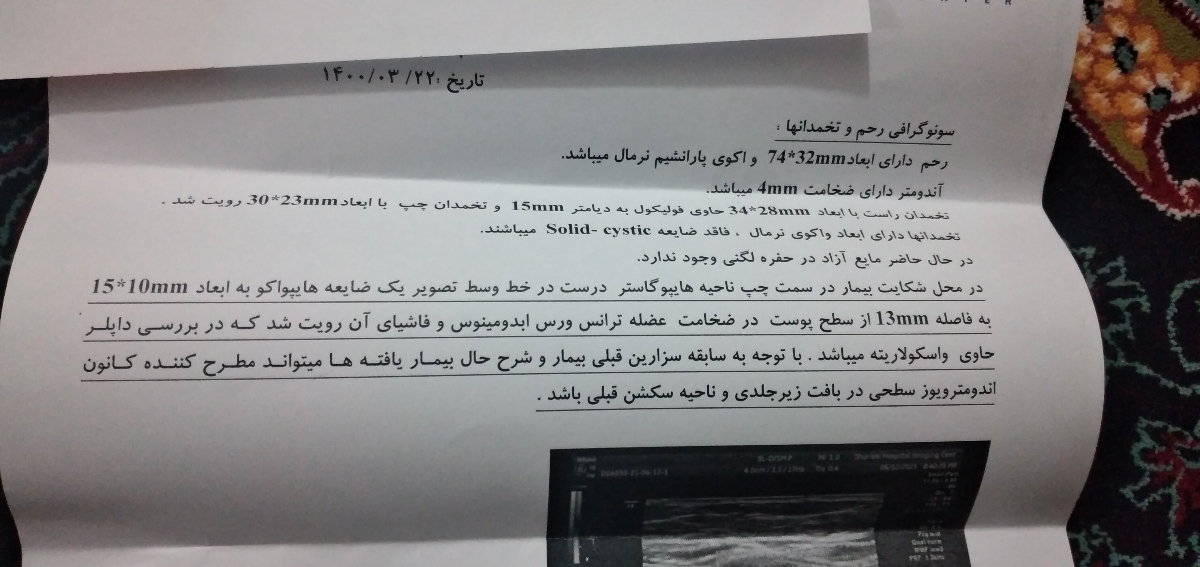 تاریخ :۱۴۰۰/۰۳/۲۲
سونوگرافی رحم و تخمدانها :
رحم دارای ابعاد74*32mm و اکوی پارانشیم نرمال میباشد.
آندومتر دارای ضخامت 4mm میباشد.
تخمدان راست با ابعاد 34*28mm حاوی فولیکول به دیامتر 15mm و تخمدان چپ با ابعاد30*23mm رویت شد .
تخمدانها دارای ابعاد واکوی نرمال ، فاقد ضایعه Solid- cystic میباشند.
در حال حاضر مایع آزاد در حفره لگنی وجود ندارد.
در محل شکایت بیمار در سمت چپ ناحیه هایپوگاستر درست در خط وسط تصویر یک ضایعه هایپواکو به ابعاد 15*10mm
به فاصله 13mm از سطح پوست در ضخامت عضله ترانس ورس ابدومینوس و فاشیای آن رویت شد که در بررسی داپلر
حاوی واسکولاریته میباشد . با توجه به سابقه سزارین قبلی بیمار و شرح حال بیمار یافته ها میتواند مطرح کننده کانون
اندومترویوز سطحی در بافت زیرجلدی و ناحیه سکشن قبلی باشد .